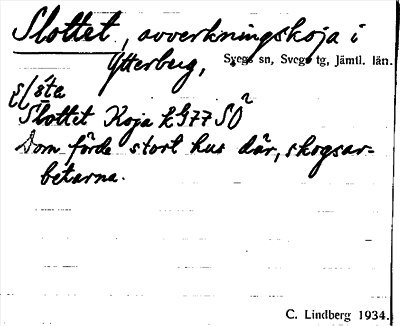 Slottet, avverkningskoja i
Ytterberg, Svegs sn, Svegs tg, Jämtl. län.
Slottet Koja kG77 SO²
Dom förde stort hus där, skogsar-
betarna.
C. Lindberg 1934.